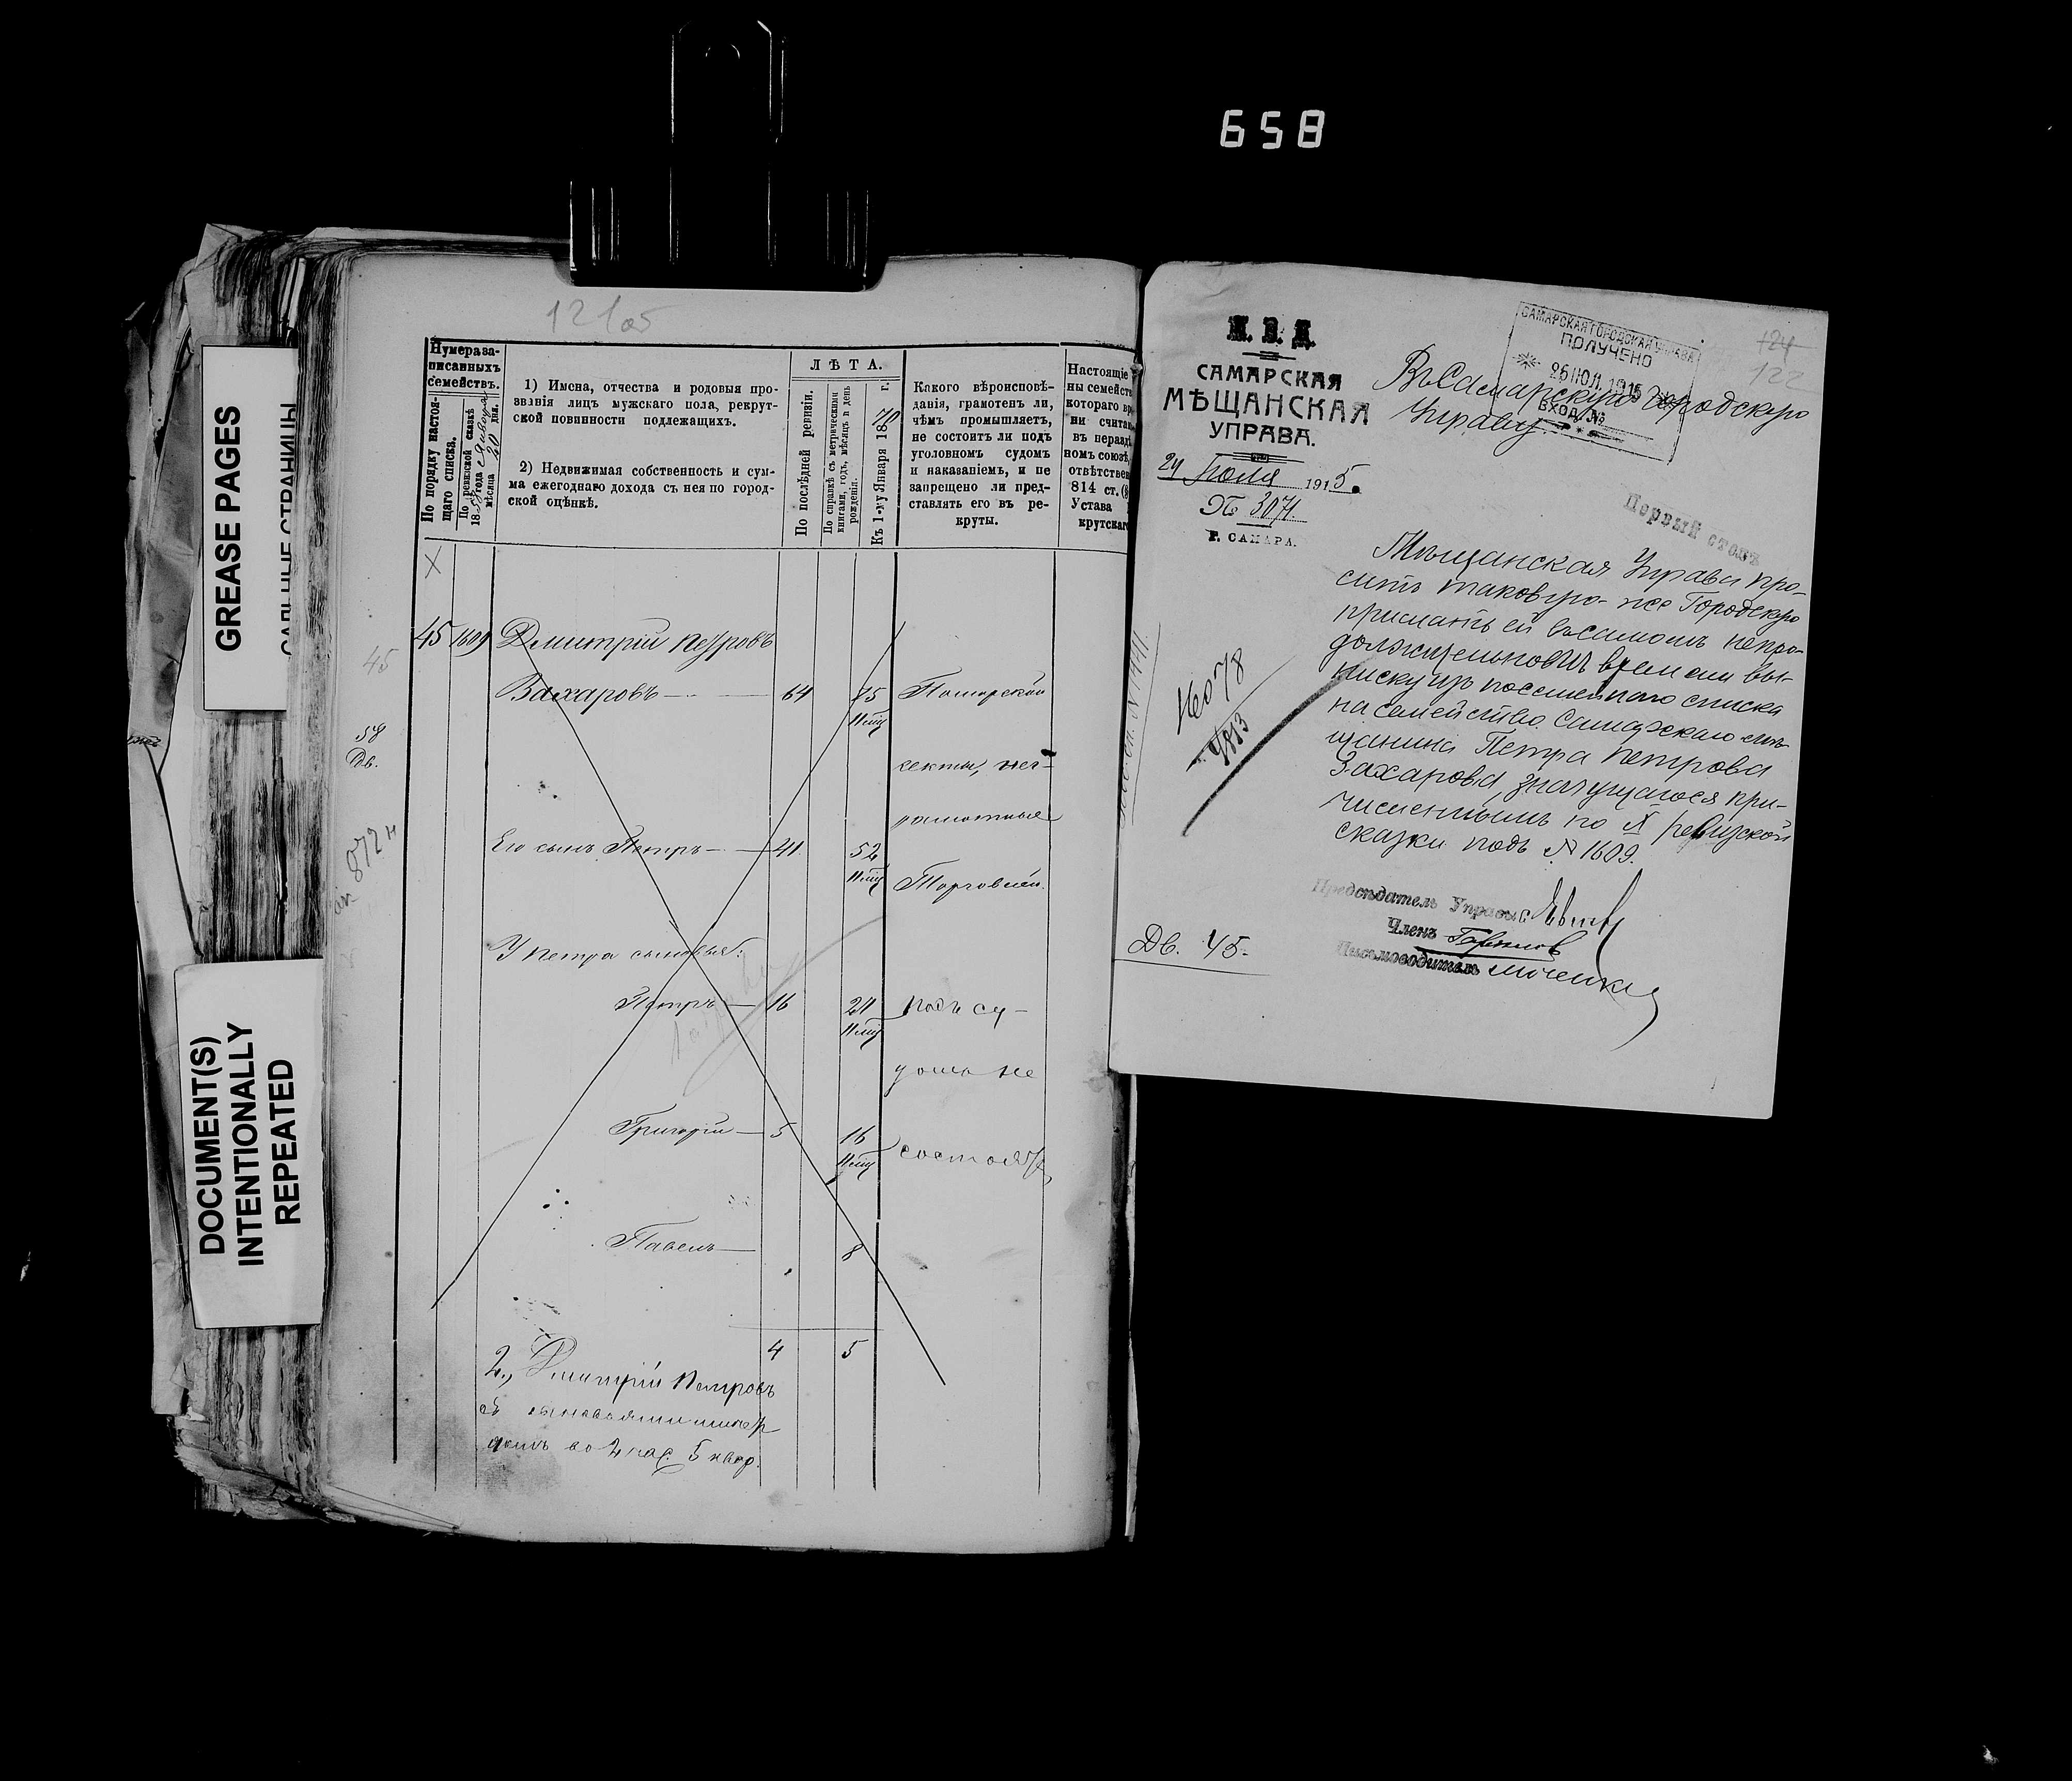 658
GREASE PAGES
САЛЬНЫЕ СТРАНИЦЫ
DOCUMENT(S)
INTENTIONALLY
REPEATED
121об
Нумера за-
писанныхъ
семействъ.
По порядку настоя-
щаго списка.
По ревизской сказкѣ
1858 года Января
мѣсяца 20 дня.
1) Имена, отчества и родовыя про-
званія лицъ мужскаго пола, рекрут-
ской повинности подлежащихъ.
2) Недвижимая собственность и сум-
ма ежегоднаго дохода съ нея по город-
ской оцѣнкѣ.
ЛѢТА.
По послѣдней ревизіи.
По справкѣ съ метрическими
книгами, годъ, мѣсяцъ и день
рожденія.
Къ 1-му Января 1870 г.
Какого вѣроисповѣ-
данія, грамотенъ ли,
чѣмъ промышляетъ,
не состоитъ ли подъ
уголовномъ судомъ
и наказаніемъ, и не
запрещено ли пред-
ставлять его въ ре-
круты.
Настоящіе
ны семейств
котораго вр
ни считал
въ неразд
номъ союзѣ,
отвѣтствен
814 ст. (
Устава
крутскаг
45 1609 Дмитрій Петровъ
45
Захаровъ — 64 75 Поморской
58
Дв.
секты, не г-
рамотные
872
Его сынъ Петръ — 41 52
Торговлей.
У Петра сыновья:
Петръ — 16 27 подъ су-
домъ не
Григорій — 5 16 состоятъ
Павелъ — 8
4 5
2., Дмитрій Петровъ
съ сыновьями имѣетъ
домъ во 2 час. 5 квар.
М. В. Д.
САМАРСКАЯ
МѢЩАНСКАЯ
УПРАВА.
24 Іюля 1915.
№ 3071.
Г. САМАРА.
САМАРСКАЯ ГОРОДСКАЯ УПРАВА
ПОЛУЧЕНО
26 ІЮЛ. 1915
ВХОД. №
124
122
Въ Самарскую Городскую
Управу
Первый столъ
Мѣщанская Управа про-
ситъ таковую-же Городскую
прислать ей въ самомъ непро-
должительномъ времени вы-
писку изъ посемейнаго списка
на семейство Самарскаго мѣ-
щанина Петра Петрова
Захарова, значущагося при-
численнымъ по X ревизской
сказки подъ № 1609.
16078
1913
Предсѣдатель Управы
Членъ
Письмоводитель
Дв. 45.